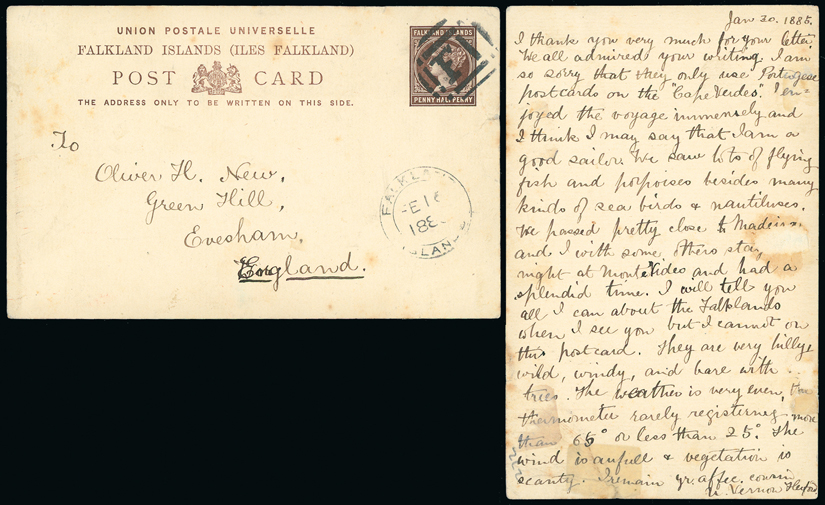 UNION POSTALE UNIVERSELLE
FALKLAND ISLANDS (ILES FALKLAND)
POST CARD
THE ADDRESS ONLY TO BE WRITTEN ON THIS SIDE.
FALKLAND ISLANDS
PENNY HALFPENNY
F I
To
Oliver H. New,
Green Hill,
Evesham,
England.
FALKLAND
FE 16
188
ISLANDS
Jan 20. 1885.
I thank you very much for your letter
We all admired your writing. I am
so sorry that they only use Portugese
postcards on the "Cape Verdes". I en-
joyed the voyage immensely and
I think I may say that I am a
good sailor. We saw lots of flying
fish and porpoises besides many
kinds of sea birds & nautiluses.
We passed pretty close to Madeira,
and I with some others stay
night at Monte Video and had a
splendid time. I will tell you
all I can about the Falklands
when I see you but I cannot on
this postcard. They are very hilly,
wild, windy, and bare with
trees. The weather is very even, the
thermometer rarely registering more
than 65° or less than 25°. The
wind is awfull & vegetation is
scanty. I remain yr. affec. cousin
Vernon